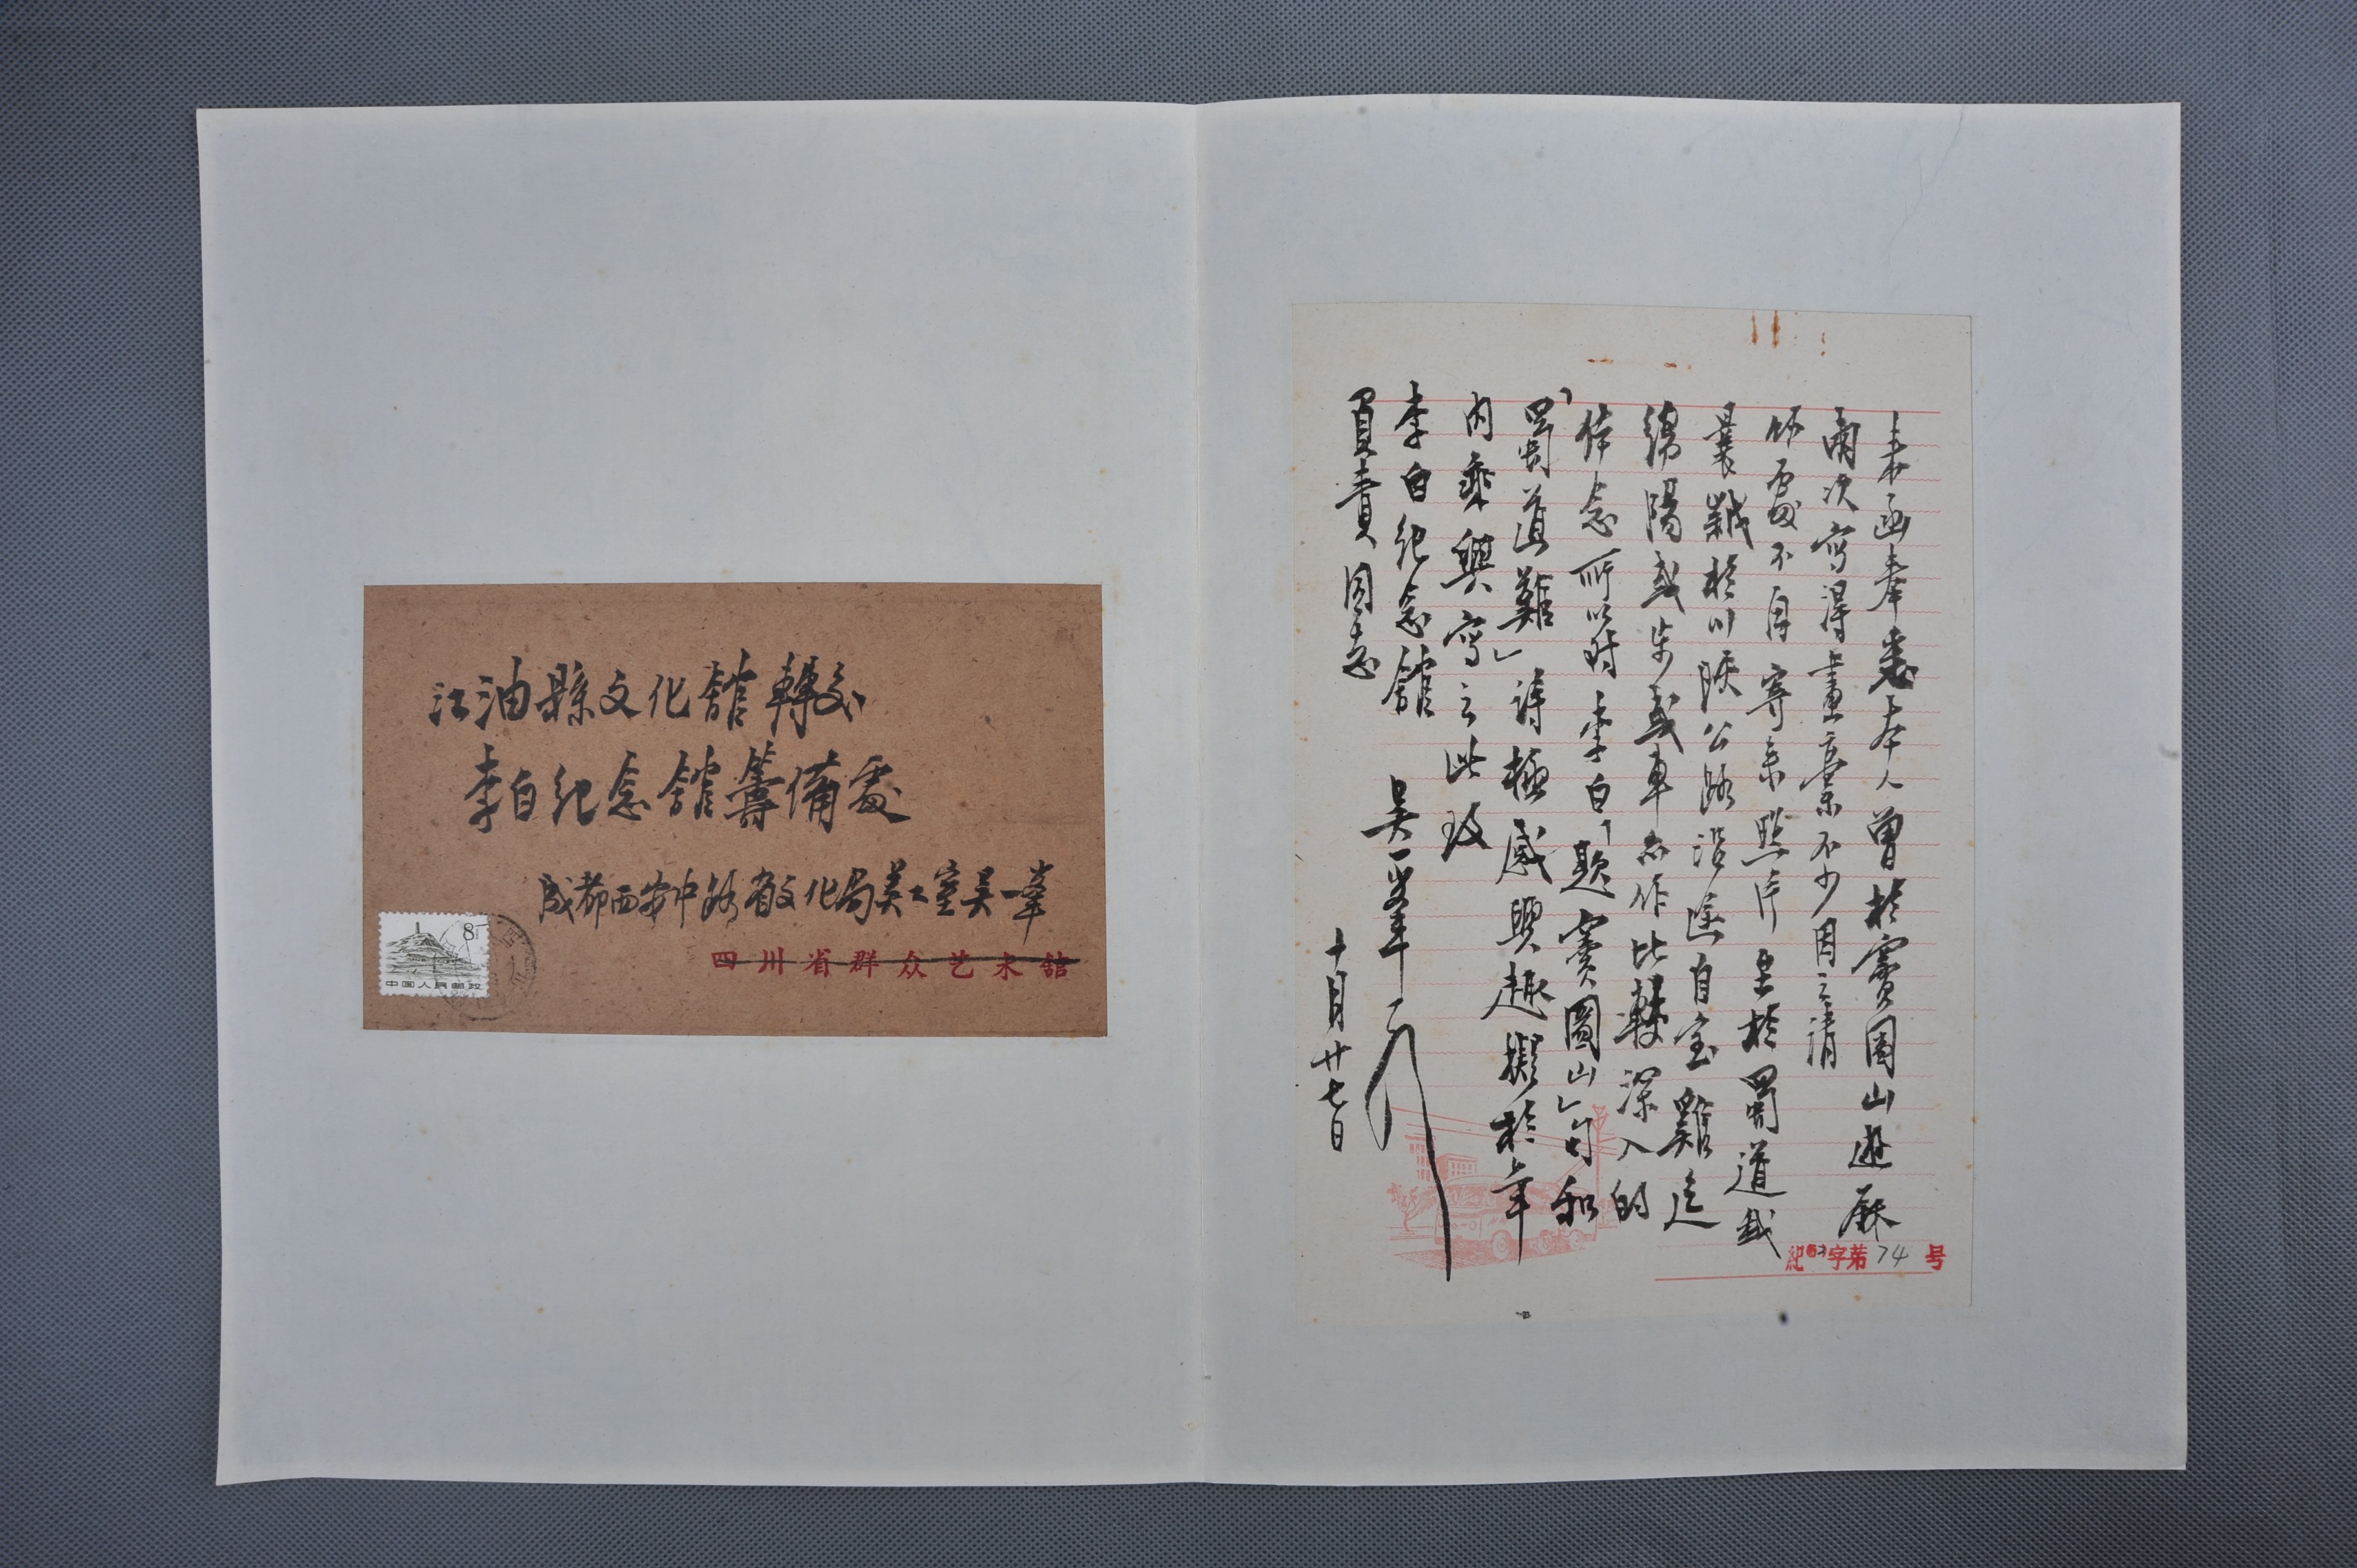 江油縣文化舘轉交
李白紀念舘籌備處
成都西安中路省文化局美工室吴一峯
四川省群众艺术館
8分
中国人民邮政
来函奉悉本人曾於竇圌山遊歴
兩次寫得畫稾不少因之請
你處不用寄来照片至於蜀道我
曩歲於川陝公路沿途自宝雞迄
綿陽或步或車亦作比較深入的
体念所以对李白「題竇圌山」句和
「蜀道難」詩極感興趣擬於年
内乘興寫之此致
李白紀念舘
負責同志
吴一峯
十月廿七日
紀63字第74号